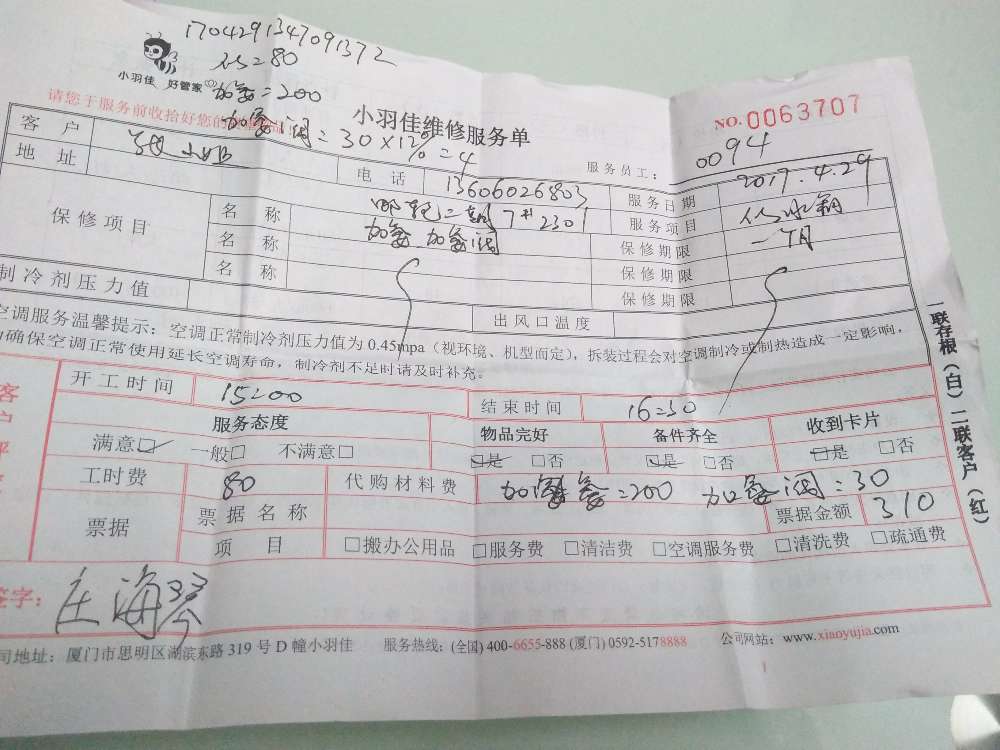 1704291347091372
=80
小羽佳 好管家
=200
请您于服务前收拾好您的
=30×12%=4
小羽佳维修服务单
NO.0063707
服务员工：
0094
客 户
电 话
13606026803
服务日期
2017.4.29
地 址
保修项目
名 称
服务项目
名 称
保修期限
一个月
名 称
保修期限
保修期限
制冷剂压力值
出风口温度
空调服务温馨提示：空调正常制冷剂压力值为 0.45mpa（视环境、机型而定），拆装过程会对空调制冷或制热造成一定影响，
为确保空调正常使用延长空调寿命，制冷剂不足时请及时补充。
开工时间
15:00
结束时间
16:30
服务态度
物品完好
备件齐全
收到卡片
满意☑ 一般□ 不满意□
☑是 □否
☑是 □否
☑是 □否
工时费
80
代购材料费
=200
=30
票据
票据名称
票据金额
310
项 目
□搬办公用品 □服务费 □清洁费 □空调服务费 □清洗费 □疏通费
签字：
庄海琴
司地址：厦门市思明区湖滨东路 319 号 D 幢小羽佳
服务热线：(全国) 400-6655-888 (厦门) 0592-5178888
公司网站：www.xiaoyujia.com
一联存根（白）二联客户（红）